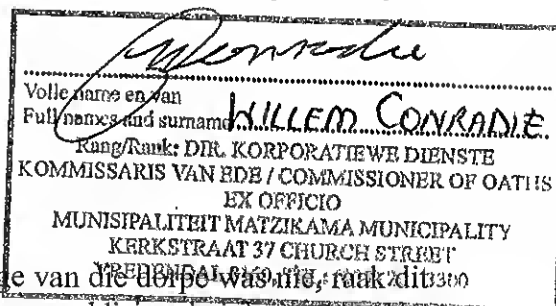 Conradie
Volle name en van
Full names and surname WILLEM CONRADIE
Rang/Rank: DIR. KORPORATIEWE DIENSTE
KOMMISSARIS VAN EDE / COMMISSIONER OF OATHS
EX OFFICIO
MUNISIPALITEIT MATZIKAMA MUNICIPALITY
KERKSTRAAT 37 CHURCH STREET
VREDENDAL
van die dorpe was nie, raak dit